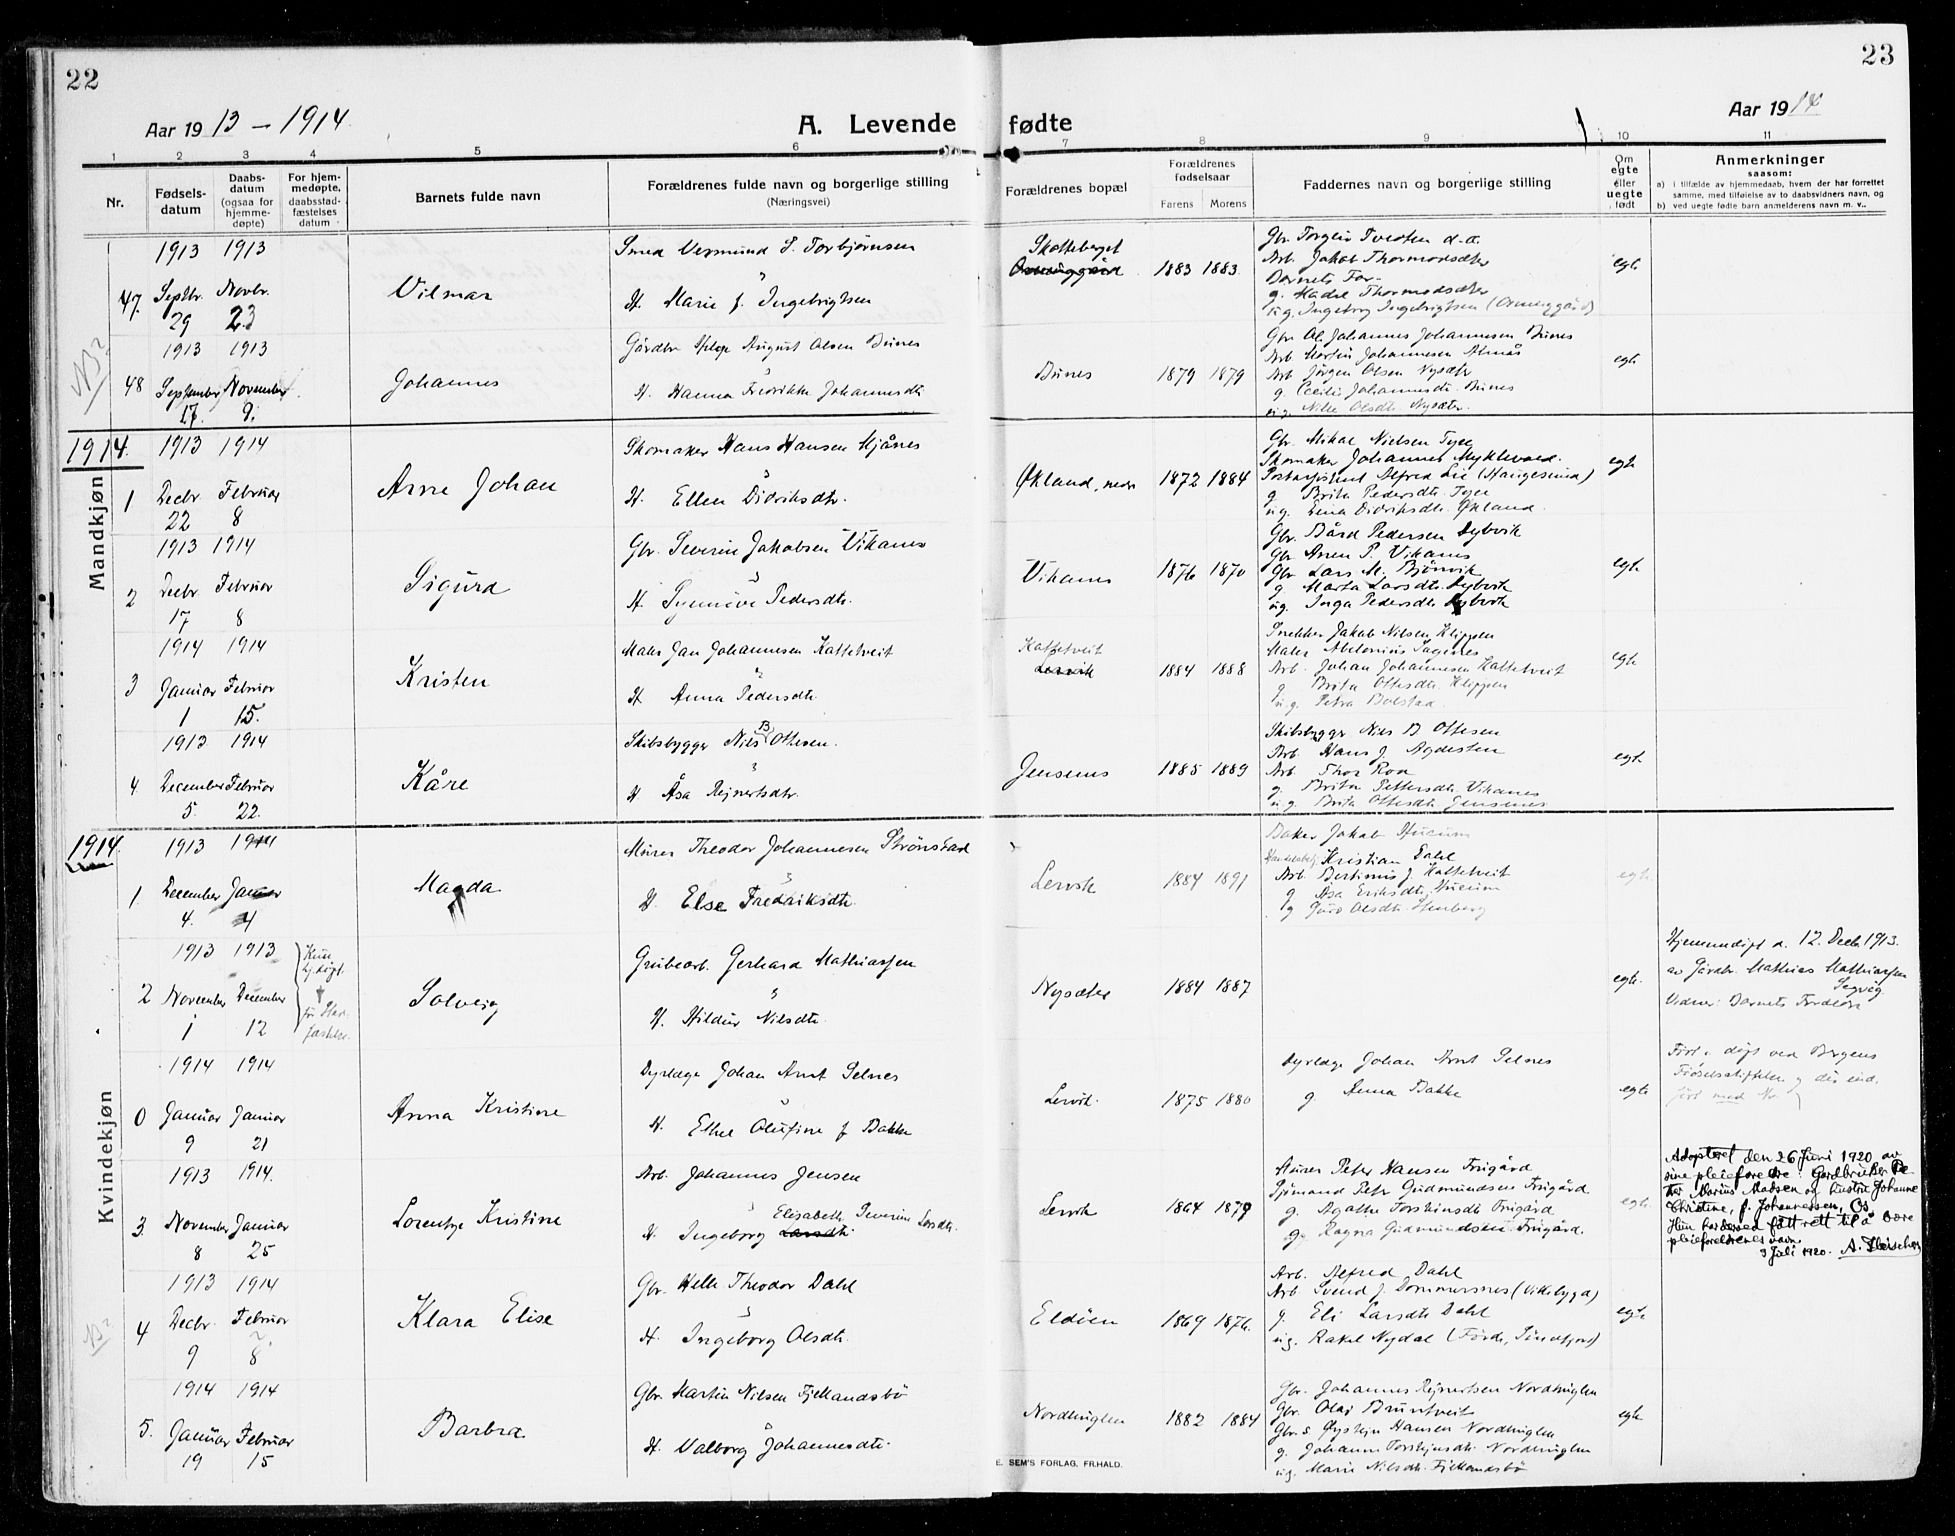 22
23
Aar 1913 – 1914
A. Levende fødte
Aar 1914
1 2 3 4 5 6 7 8 9 10 11
Nr.
Fødsels-
datum
Daabs-
datum
(ogsaa for
hjemme-
døpte)
For hjem-
medøpte,
daabsstad-
fæstelses
datum
Barnets fulde navn
Forældrenes fulde navn og borgerlige stilling
(Næringsvei)
Forældrenes bopæl
Forældrenes
fødselsaar
Farens Morens
Faddernes navn og borgerlige stilling
Om
egte
eller
uegte
født
Anmerkninger
saasom:
a) i tilfælde av hjemmedaab, hvem der har forrettet
samme, med tilføielse av to daabsvidners navn, og
b) ved uegte fødte barn anmelderens navn m. v..
47. 1913 Septbr. 29 1913 Novbr. 23
Vilmar
Smed Vermund S. Torbjørnsen
H. Marie J. Ingebrigtsen
Skotteberget
1883 1883
Gbr. Torgeir Tveiten d.a.
Arb. Jakob Thormodsæter
Barnets Far
g. Thormodsæter
ug. Ingeborg Ingebrigtsen
egte
NB?
48 1913 September 17. 1913 November 9.
Johannes
Gårdbr Helge August Olsen Bunes
H. Hanna Fredrikke Johannesdtr
Bunes
1879 1879
Gbr Ol. Johannes Johannesen Bunes
Arb Martin Johannesen Almås
Arb Jørgen Olsen Nysæter
g. Cecilie Johannesdtr. Bunes
ug. Olsdtr Nysæter.
egte
1914.
Mandkjøn
1 1913 Decbr. 22 1914 Februar 8
Arne Johan
Skomaker Hans Hansen Mjånes
H. Ellen Didriksdtr.
Økland, nedr
1872 1884
Gbr. Mikal Nielsen Tyse
Skomaker Johannes Myklevold.
Alfred Lie (Haugesund)
g. Brita Pedersdtr. Tyse
ug. Didriksdtr. Økland.
egte
2 1913 Decbr. 17 1914 Februar 8
Sigurd
Gbr. Severin Jakobsen Vikanes
H. Synnøve Pedersdtr.
Vikanes
1876 1870
Gbr. Bård Pedersen Dybvik
Gbr Aren P. Vikanes
Gbr Lars M. Bjønvik
g. Marta Larsdtr. Dybvik
ug. Inga Pedersdtr Dybvik
egte
3 1914 Januar 1 1914 Februar 15.
Kristen
Maler Jan Johannesen Kattetveit
H Anna Pedersdtr.
Kattetveit
Lervik
1884 1888
Snekker Jakob Nilsen Klippen
Maler Sagenes
Arb. Johan Johannesen Kattetveit
g. Brita Ottesdtr. Klippen
ug. Petra Bolstad.
egte
4. 1913 December 5. 1914 Februar 22.
Kåre
Skibsbygger Nils B Ottesen.
H Åsa Rejnertsdtr.
Jensenes
1885 1889
Skibsbygger Nils B Ottesen
Arb. Hans J. Agdesten
Arb. Thor Roa
g. Brita Pettersdtr. Vikanes
ug. Brita Ottesdtr Jensenes
egte
1914.
Kvindekjøn
1 1913 December 4. 1914 Januar 4
Magda
Murer Theodor Johannesen Strønstad
H. Else Fredriksdtr.
Lervik
1884 1891
Baker Jakob
Kristian Dahl
Arb Bertinius J. Kattetveit
g Åsa Eriksdtr.
g Olsdtr. Stenberg
egte
2 1913 November 1 1913 December 12
Kun hj.døpt.
† før stad-
fæstelse.
Solveig
Grubearb. Gerhard Mathiassen
H. Hildur Nilsdtr.
Nysæter
1884 1887
egte.
Hjemmedøpt d. 12. Decbr 1913.
av Gårdbr. Mathias Mathiassen
Vidner: Barnets Forældre
0 1914 Januar 9 1914 Januar 21
Anna Kristine
Dyrlæge Johan Arnt Selnes
H. Ethel Olufine f Bakke
Lervik.
1875 1880
Dyrlæge Johan Arnt Selnes
g. Anna Bakke
egte
Født og døpt ved Bergens
Fødselsstiftelse og der ind-
ført med No
3. 1913 November 8 1914. Januar 25
Lorentze Kristine
Arb. Johannes Jensen
H. Ingeborg Elisabeth Severine Larsdtr.
Lervik
1864 1879
Murer Peter Hansen Frugård
Sjømand Petr Gudmundsen Frugård
g. Agathe Torsteinsdtr Frugård
g. Ragna Gudmundsen Frugård.
egte.
Adopteret den 26 Juni 1920 av
sine pleieforeldre: Gårdbruker Pe-
ter Marius Madsen og hustru Johanne
Christine, f. Johannessen, Os.
Hun har derved fått rett til å bære
pleieforeldrenes navn.
9 Juli 1920. A. Fleischer
NB?
4 1913 Decbr. 9 1914 Februar 8
Klara Elise
Gbr. Helle Theodor Dahl
H. Ingeborg Olsdtr.
Eldøen
1869 1876.
Arb. Alfred Dahl
Arb. Svend J. Dommersnes (Vikebygd)
g. Eli Larsdtr Dahl
ug. Rakel Nydal (Førde, Søndfjord)
egte
5. 1914 Januar 19 1914 Februar 15
Barbra
Gbr. Martin Nilsen Fjellandsbø
H. Valborg Johannesdtr.
Nordhuglen
1882 1884
Gbr. Johannes Rejnertsen Nordhuglen
Gbr. Olai Bruntveit
Gbr.s. Øystein Hansen Nordhuglen
g. Johanne Torsteinsdtr. Nordhuglen
ug. Marie Nilsdtr. Fjellandsbø
egte
E. SEM'S FORLAG, FR.HALD.